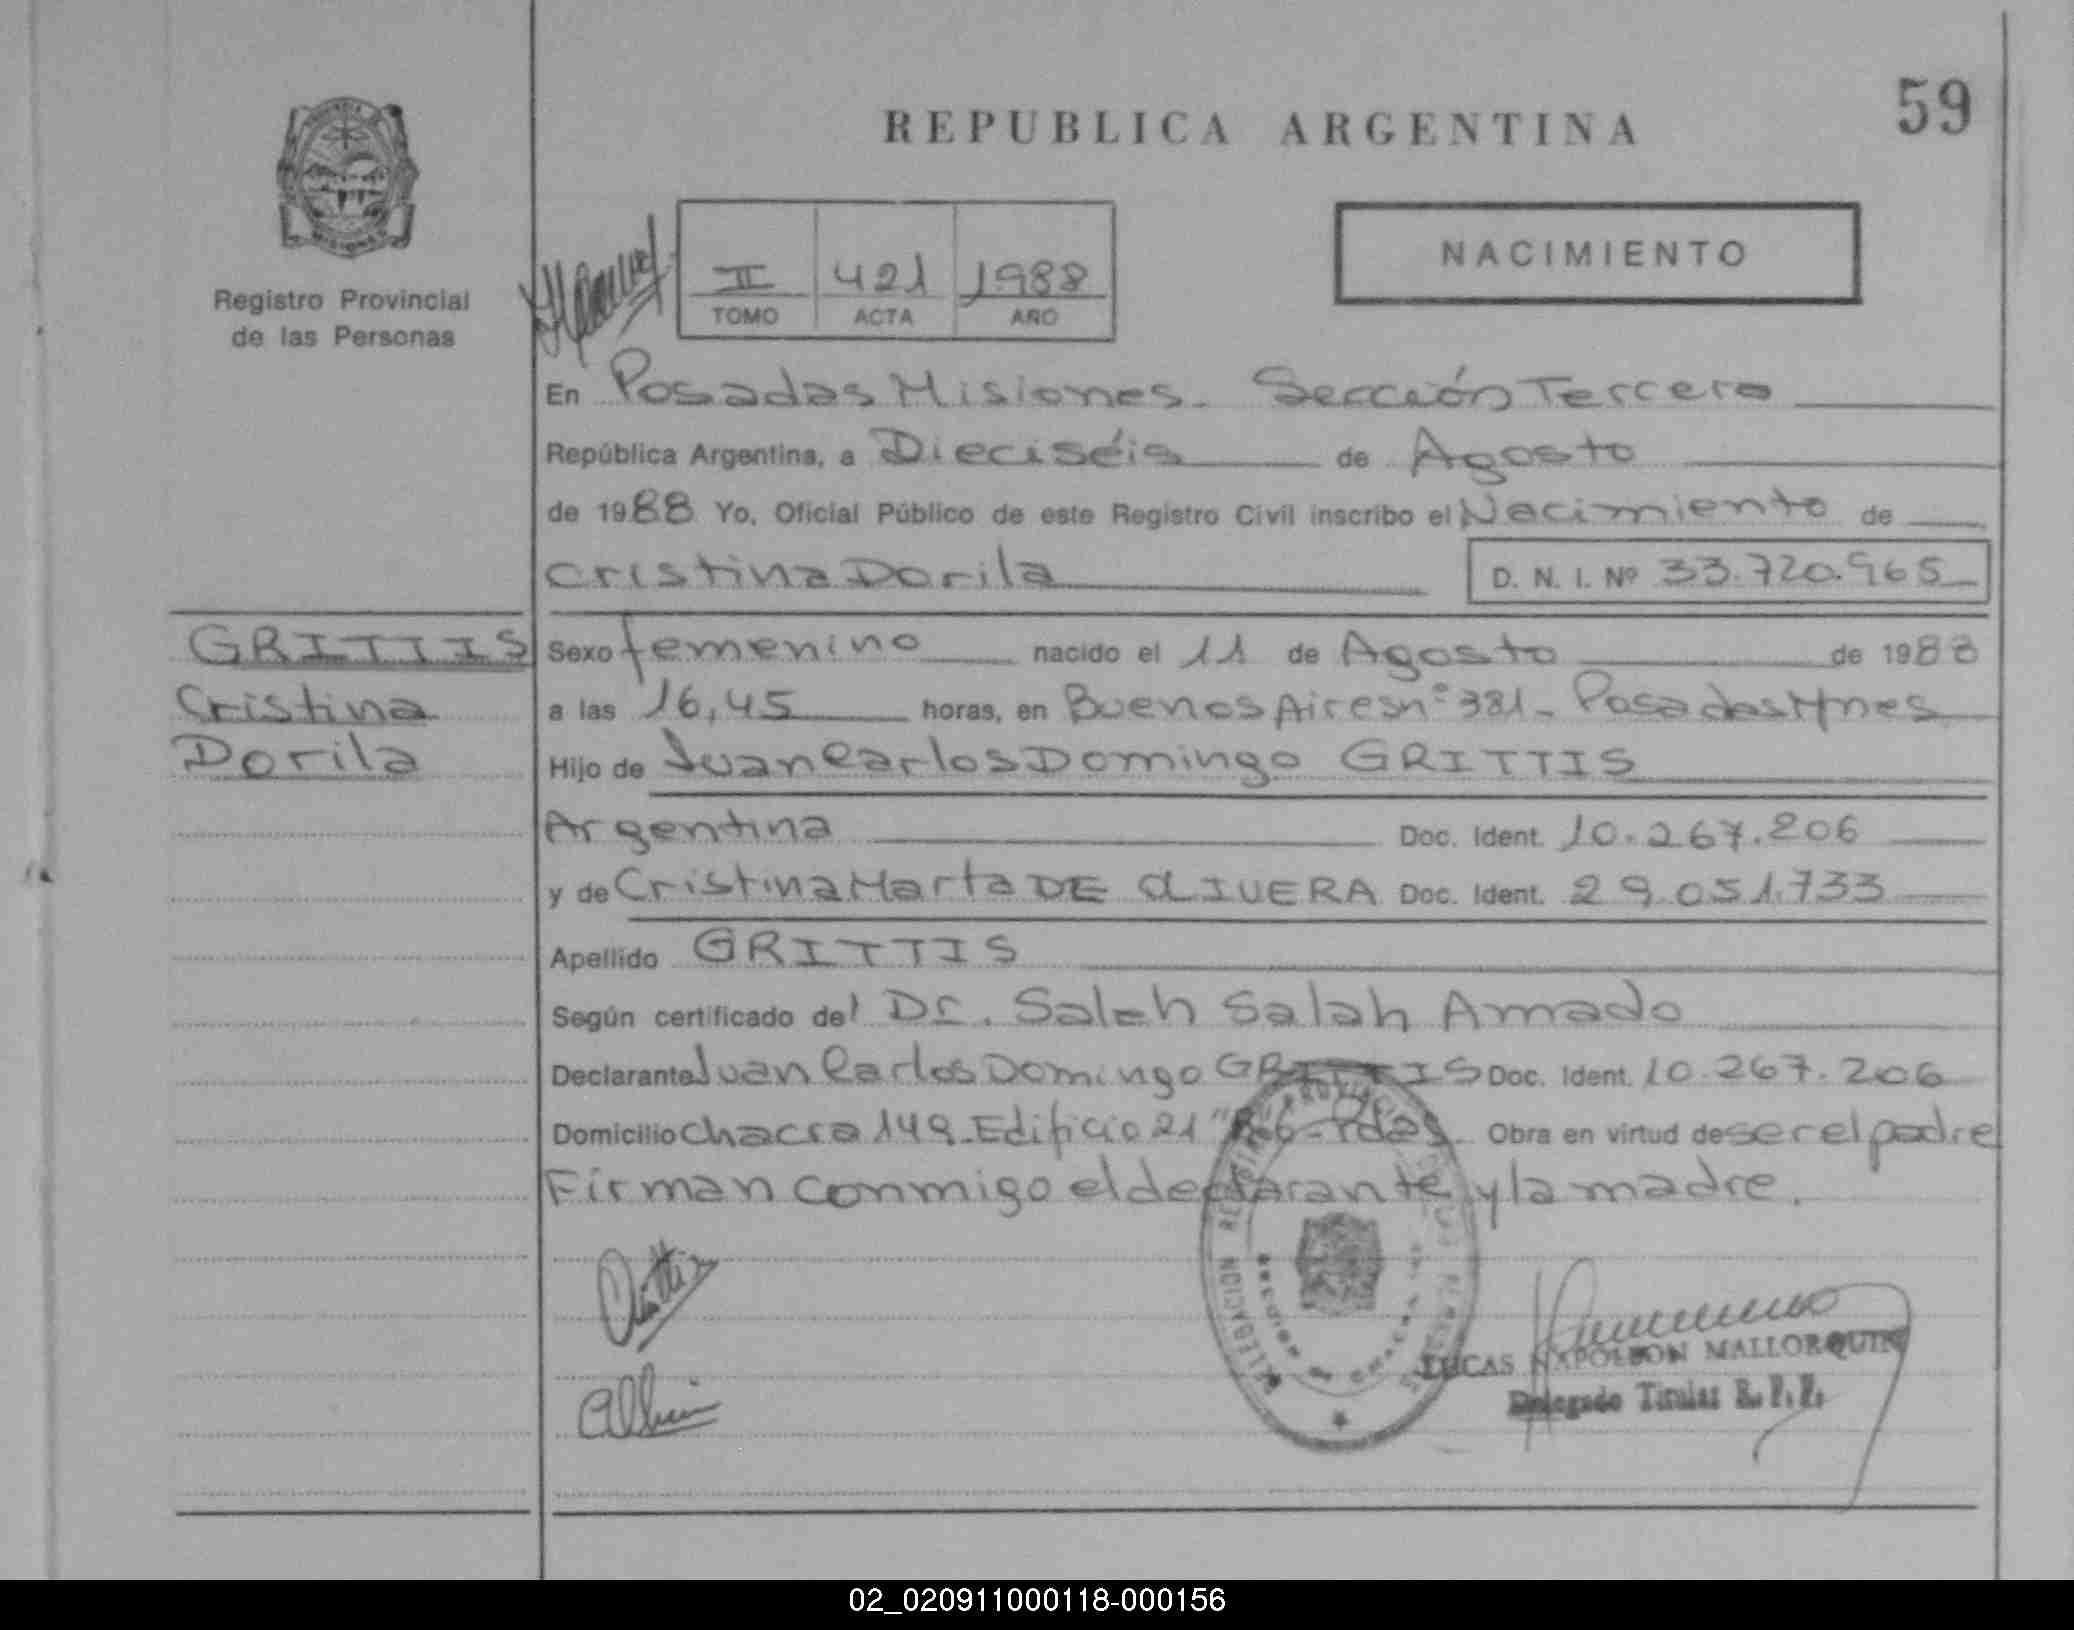 59
REPUBLICA ARGENTINA
Registro Provincial
de las Personas
II 421 1988
TOMO ACTA AÑO
NACIMIENTO
En Posadas Misiones. Sección Tercera
República Argentina, a Dieciséis de Agosto
de 1988 Yo, Oficial Público de este Registro Civil inscribo el Nacimiento de
Cristina Dorila D. N. I. Nº 33.720.965
GRITTIS
Cristina
Dorila
Sexo femenino nacido el 11 de Agosto de 1988
a las 16,45 horas, en Buenos Aires nº 381- Posadas Mnes
Hijo de Juan Carlos Domingo GRITTIS
Argentina Doc. Ident. 10.267.206
y de Cristina Marta DE OLIVERA Doc. Ident. 29.051.733
Apellido GRITTIS
Según certificado del Dr. Saleh Salah Amado
Declarante Juan Carlos Domingo GRITTIS Doc. Ident. 10.267.206
Domicilio Chacra 149-Edificio 21 Obra en virtud de ser el padre
Firman conmigo el declarante y la madre.
LUCAS NAPOLEON MALLORQUIN
Delegado Titular R.P.P.
02_020911000118-000156